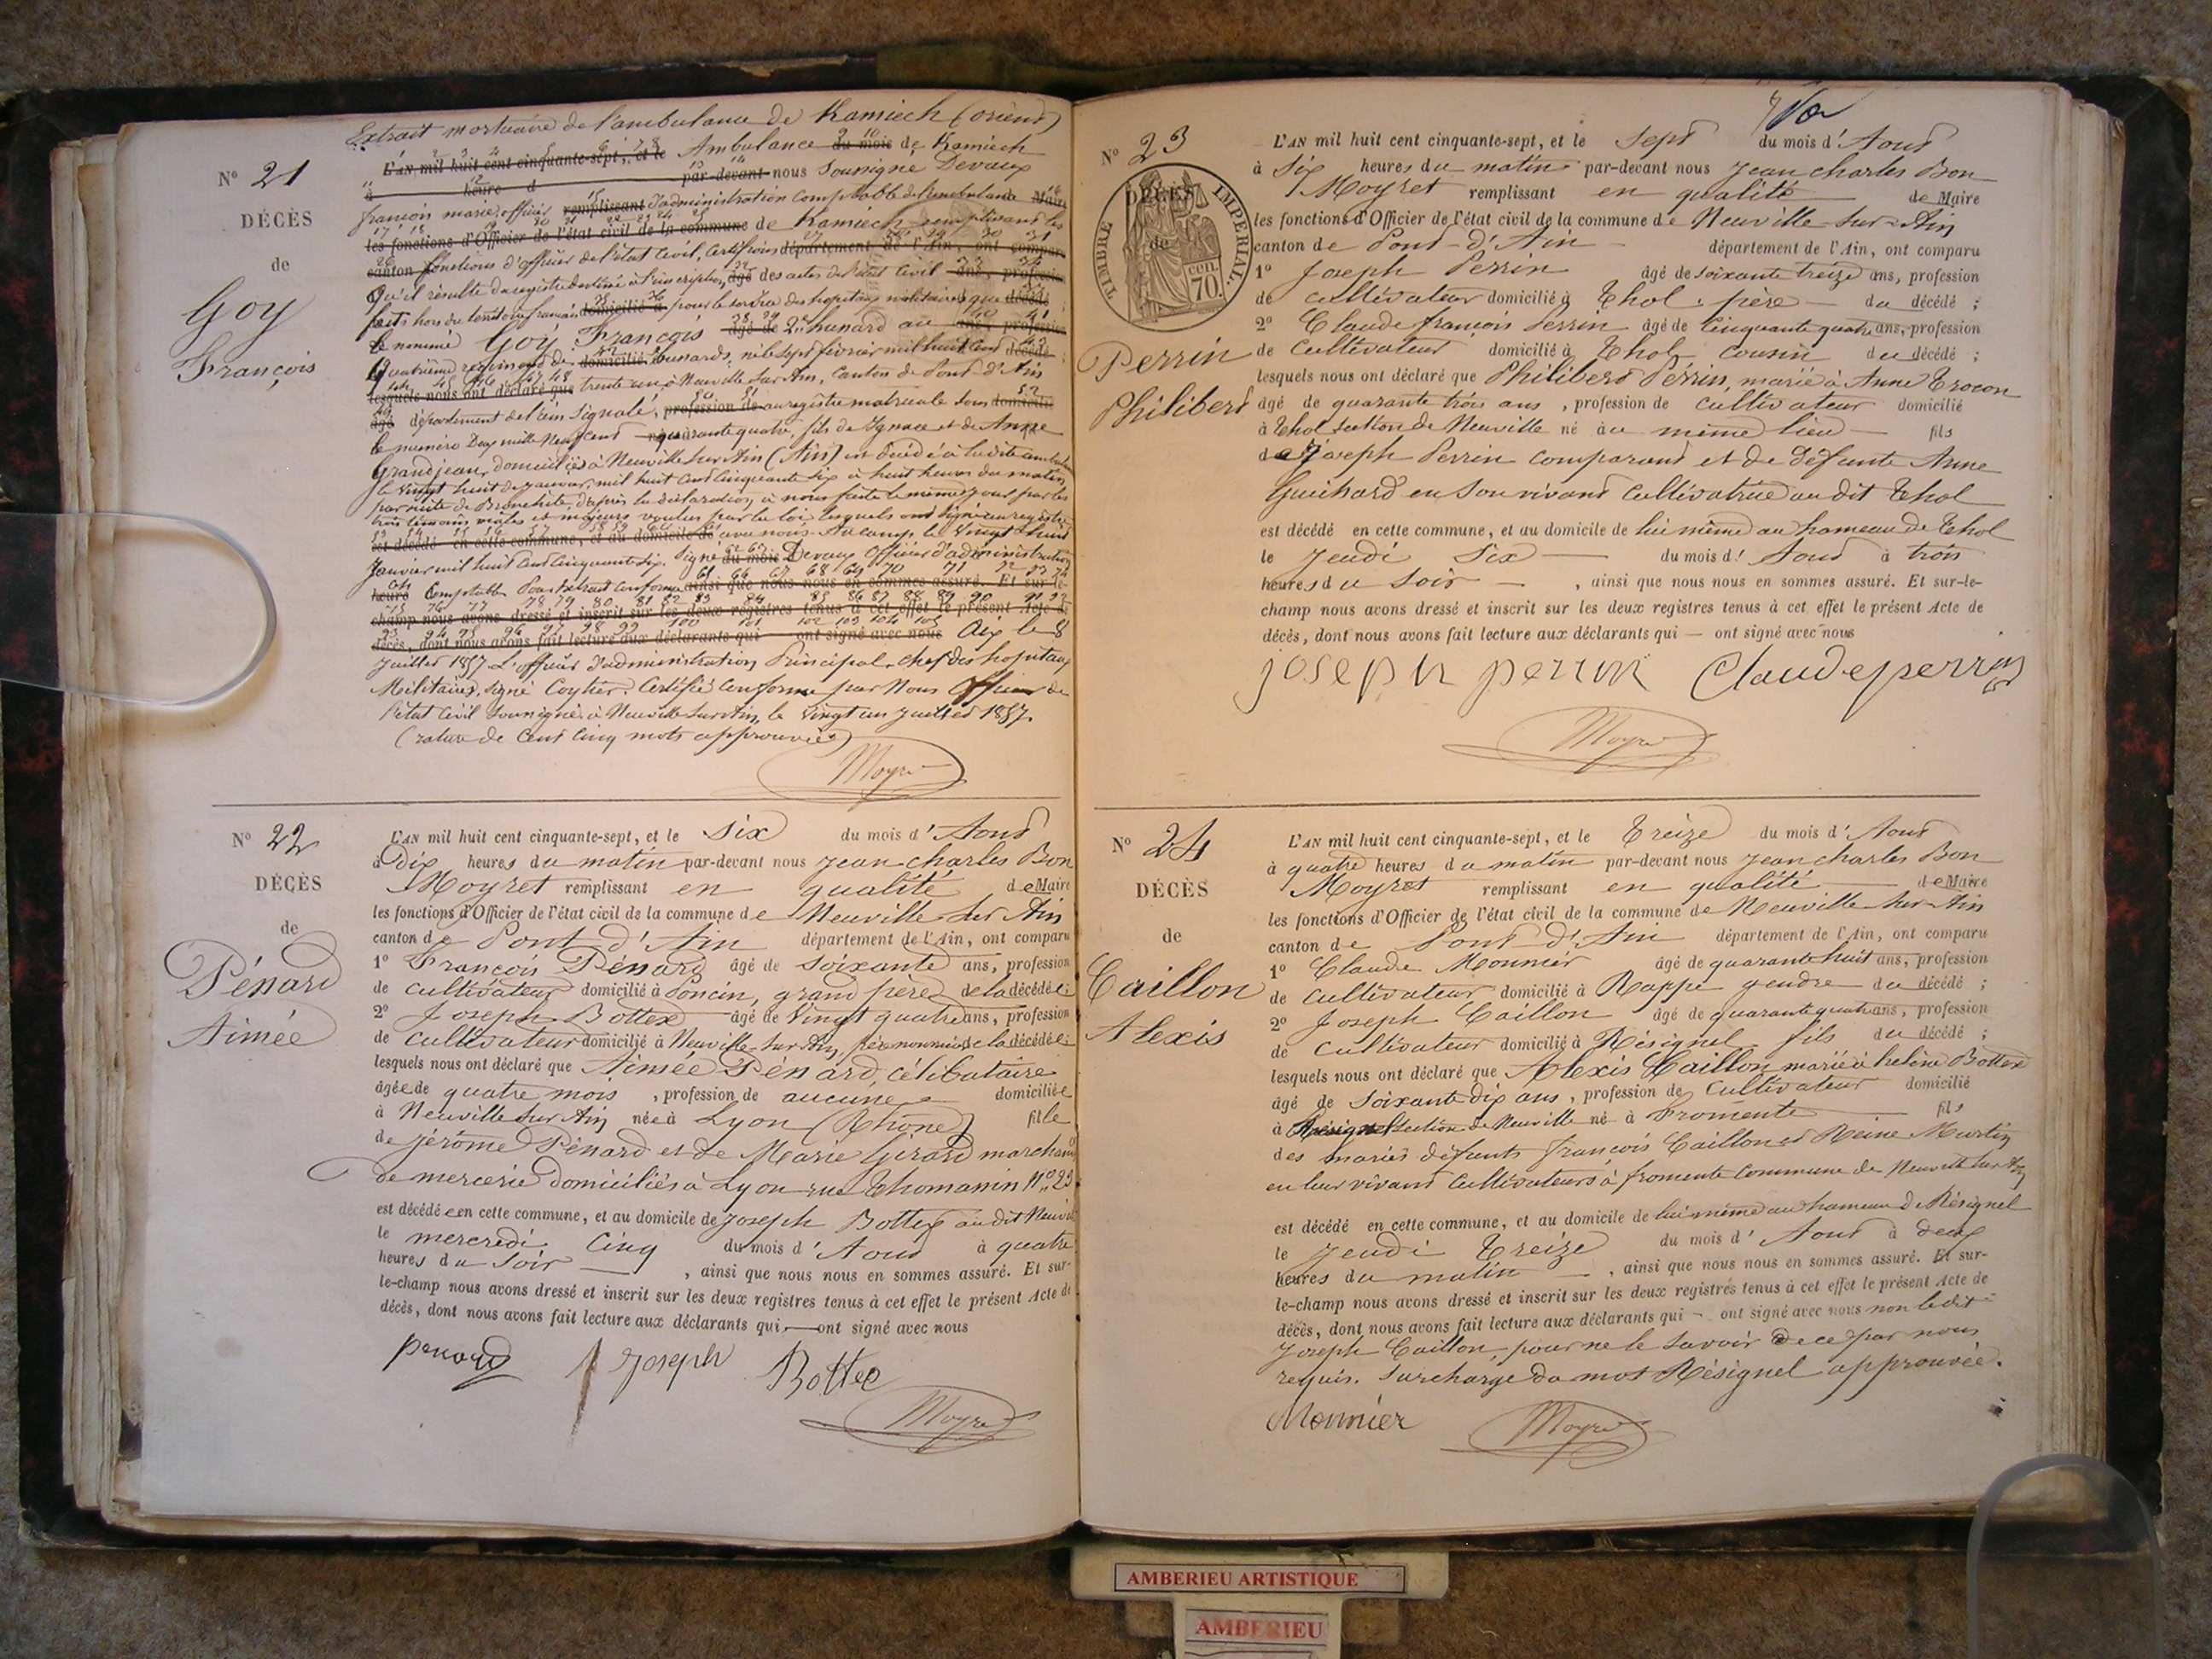 Extrait mortuaire de l'ambulance de Kamiech (orient)
N° 21
L'AN mil huit cent cinquante-sept, et le Ambulance du mois de Kamiech
à heure d par-devant nous soussigné Devaux
DÉCÈS
françois marie, officier remplissant d'administration comptable de l'ambulance Maire
les fonctions d'Officier de l'état civil de la commune de Kamiech remplissant les
de
canton fonctions d'officier de l'état civil, certifions département de l'Ain, ont comparu
Qu'il résulte du registre destiné à l'inscription âgé des actes de l'état civil ans, profession
Goy
François
faits hors du territoire français domicilié à pour le service des hopitaux militaires que décédé
le nommé Goy François âgé de 2e hussard au ans, profession
Quatrième régiment de domicilié hussards, né le sept février mil huit cent décédé
lesquels nous ont déclaré que trente un à Neuville sur Ain, Canton de Pont d'Ain
âgé département de l'ain signalé, profession de au registre matricule sous domicilié
le numéro Deux mille Neuf cent quarante quatre, fils de Ignace et de Anne
Grandjean, domiciliés à Neuville sur Ain (Ain) est décédé à la dite ambulance
le vingt huit de janvier, mil huit cent cinquante six à huit heures du matin
par suite de Bronchite, d'après la déclaration à nous faite le même jour par les
trois témoins mâles et majeurs voulus par la loi lesquels ont signé au registre
est décédé en cette commune, et au domicile de avec nous. Au camp le Vingt huit
Janvier mil huit cent cinquante six. Signé du mois Devaux Officier d'administration
heure Comptable Pour Extrait conforme ainsi que nous nous en sommes assuré. Et sur-le-
champ nous avons dressé et inscrit sur les deux registres tenus à cet effet le présent Acte de
décès, dont nous avons fait lecture aux déclarants qui ont signé avec nous Aix le 8
Juillet 1857. L'officier d'administration Principal, chef des hopitaux
Militaires, signé Coytier. Certifié conforme par Nous Officier de
l'état civil soussigné à Neuville sur Ain, le vingt un juillet 1857.
(rature de cent cinq mots approuvée)
Moyret
N° 22
DÉCÈS
de
Pénard
Aimée
L'AN mil huit cent cinquante-sept, et le six du mois d'Aout
à Dix heures du matin par-devant nous Jean charles Bon
Moyret remplissant en qualité de Maire
les fonctions d'Officier de l'état civil de la commune de Neuville sur Ain
canton de Pont d'Ain département de l'Ain, ont comparu
1° François Pénard âgé de soixante ans, profession
de cultivateur domicilié à Poncin, grand père de la décédée;
2° Joseph Bottex âgé de vingt quatre ans, profession
de cultivateur domicilié à Neuville sur Ain, père nourricier de la décédée;
lesquels nous ont déclaré que Aimée Pénard, célibataire
âgée de quatre mois, profession de aucune domiciliée
à Neuville sur Ain née à Lyon (Rhône) fille
de Jérôme Pénard et de Marie Girard marchand
de mercerie domiciliés à Lyon rue Thomassin N° 23
est décédée en cette commune, et au domicile de Joseph Bottex au dit Neuville
le mercredi cinq du mois d'Aout à quatre
heures du soir, ainsi que nous nous en sommes assuré. Et sur-
le-champ nous avons dressé et inscrit sur les deux registres tenus à cet effet le présent Acte de
décès, dont nous avons fait lecture aux déclarants qui ont signé avec nous
penard Joseph Bottex
Moyret
N° 23
TIMBRE IMPÉRIAL
70 cen.
DÉCÈS
de
Perrin
Philibert
L'AN mil huit cent cinquante-sept, et le sept du mois d'Aout
à six heures du matin par-devant nous Jean charles Bon
Moyret remplissant en qualité de Maire
les fonctions d'Officier de l'état civil de la commune de Neuville sur Ain
canton de Pont-d'Ain département de l'Ain, ont comparu
1° Joseph Perrin âgé de soixante treize ans, profession
de cultivateur domicilié à Thol, père du décédé;
2° Claude françois Perrin âgé de cinquante quatre ans, profession
de cultivateur domicilié à Thol cousin du décédé;
lesquels nous ont déclaré que Philibert Perrin, marié à Anne Trocon
âgé de quarante trois ans, profession de cultivateur domicilié
à Thol section de Neuville né au même lieu fils
de Joseph Perrin comparant et de défunte Anne
Guichard en son vivant cultivatrice au dit Thol
est décédé en cette commune, et au domicile de lui même au hameau de Thol
le Jeudi six du mois d'Aout à trois
heures du soir, ainsi que nous nous en sommes assuré. Et sur-le-
champ nous avons dressé et inscrit sur les deux registres tenus à cet effet le présent Acte de
décès, dont nous avons fait lecture aux déclarants qui — ont signé avec nous
joseph perrin Claude perrin
Moyret
N° 24
DÉCÈS
de
Caillon
Alexis
L'AN mil huit cent cinquante-sept, et le Treize du mois d'Aout
à quatre heures du matin par-devant nous Jean charles Bon
Moyret remplissant en qualité de Maire
les fonctions d'Officier de l'état civil de la commune de Neuville sur Ain
canton de Pont d'Ain département de l'Ain, ont comparu
1° Claude Monnier âgé de quarante huit ans, profession
de cultivateur domicilié à Rappe gendre du décédé;
2° Joseph Caillon âgé de quarante quatre ans, profession
de cultivateur domicilié à Résignel fils du décédé;
lesquels nous ont déclaré que Alexis Caillon marié à heléne Bottex
âgé de soixante dix ans, profession de cultivateur domicilié
à Résignel section de Neuville né à Fromente fils
des mariés défunts françois Caillon et Reine Martin
en leur vivant cultivateurs à fromente commune de Neuville sur Ain
est décédé en cette commune, et au domicile de lui même au hameau de Résignel
le Jeudi Treize du mois d'Aout à deux
heures du matin, ainsi que nous nous en sommes assuré. Et sur-
le-champ nous avons dressé et inscrit sur les deux registres tenus à cet effet le présent Acte de
décès, dont nous avons fait lecture aux déclarants qui ont signé avec nous non le dit
Joseph Caillon, pour ne le savoir de ce par nous
requis. Surcharge du mot Résignel approuvée.
Monnier Moyret
AMBERIEU ARTISTIQUE
AMBERIEU